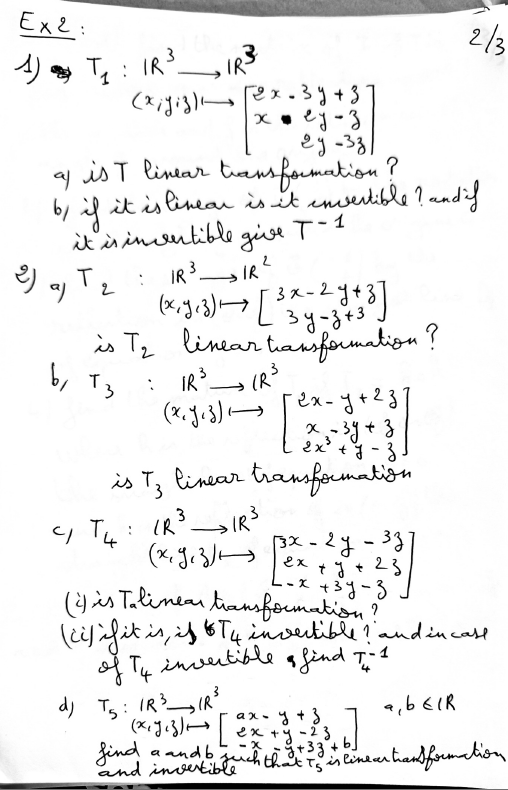 Ex2:
2/3
1) T₁ : IR³ → IR³
(x,y,z) ↦ [2x - 3y + z
x • 2y - z
2y - 3z]
a) is T linear transformation?
b) if it is linear is it invertible? and if
it is invertible give T-1
2) a) T₂ : IR³ → IR²
(x,y,z) ↦ [3x - 2y + z
3y - z + 3]
is T₂ linear transformation?
b) T₃ : IR³ → IR³
(x,y,z) ↦ [2x - y + 2z
x - 3y + z
2x³ + y - z]
is T₃ linear transformation
c) T₄ : IR³ → IR³
(x,y,z) ↦ [3x - 2y - 3z
2x + y + 2z
-x + 3y - z]
(i) is T₄ linear transformation?
(ii) if it is, is T₄ invertible? and in case
of T₄ invertible, find T₄-1
d) T₅ : IR³ → IR³ a,b ∈ IR
(x,y,z) ↦ [ax - y + z
2x + y - 2z
-x - y + 3z + b]
find a and b such that T₅ is linear transformation
and invertible